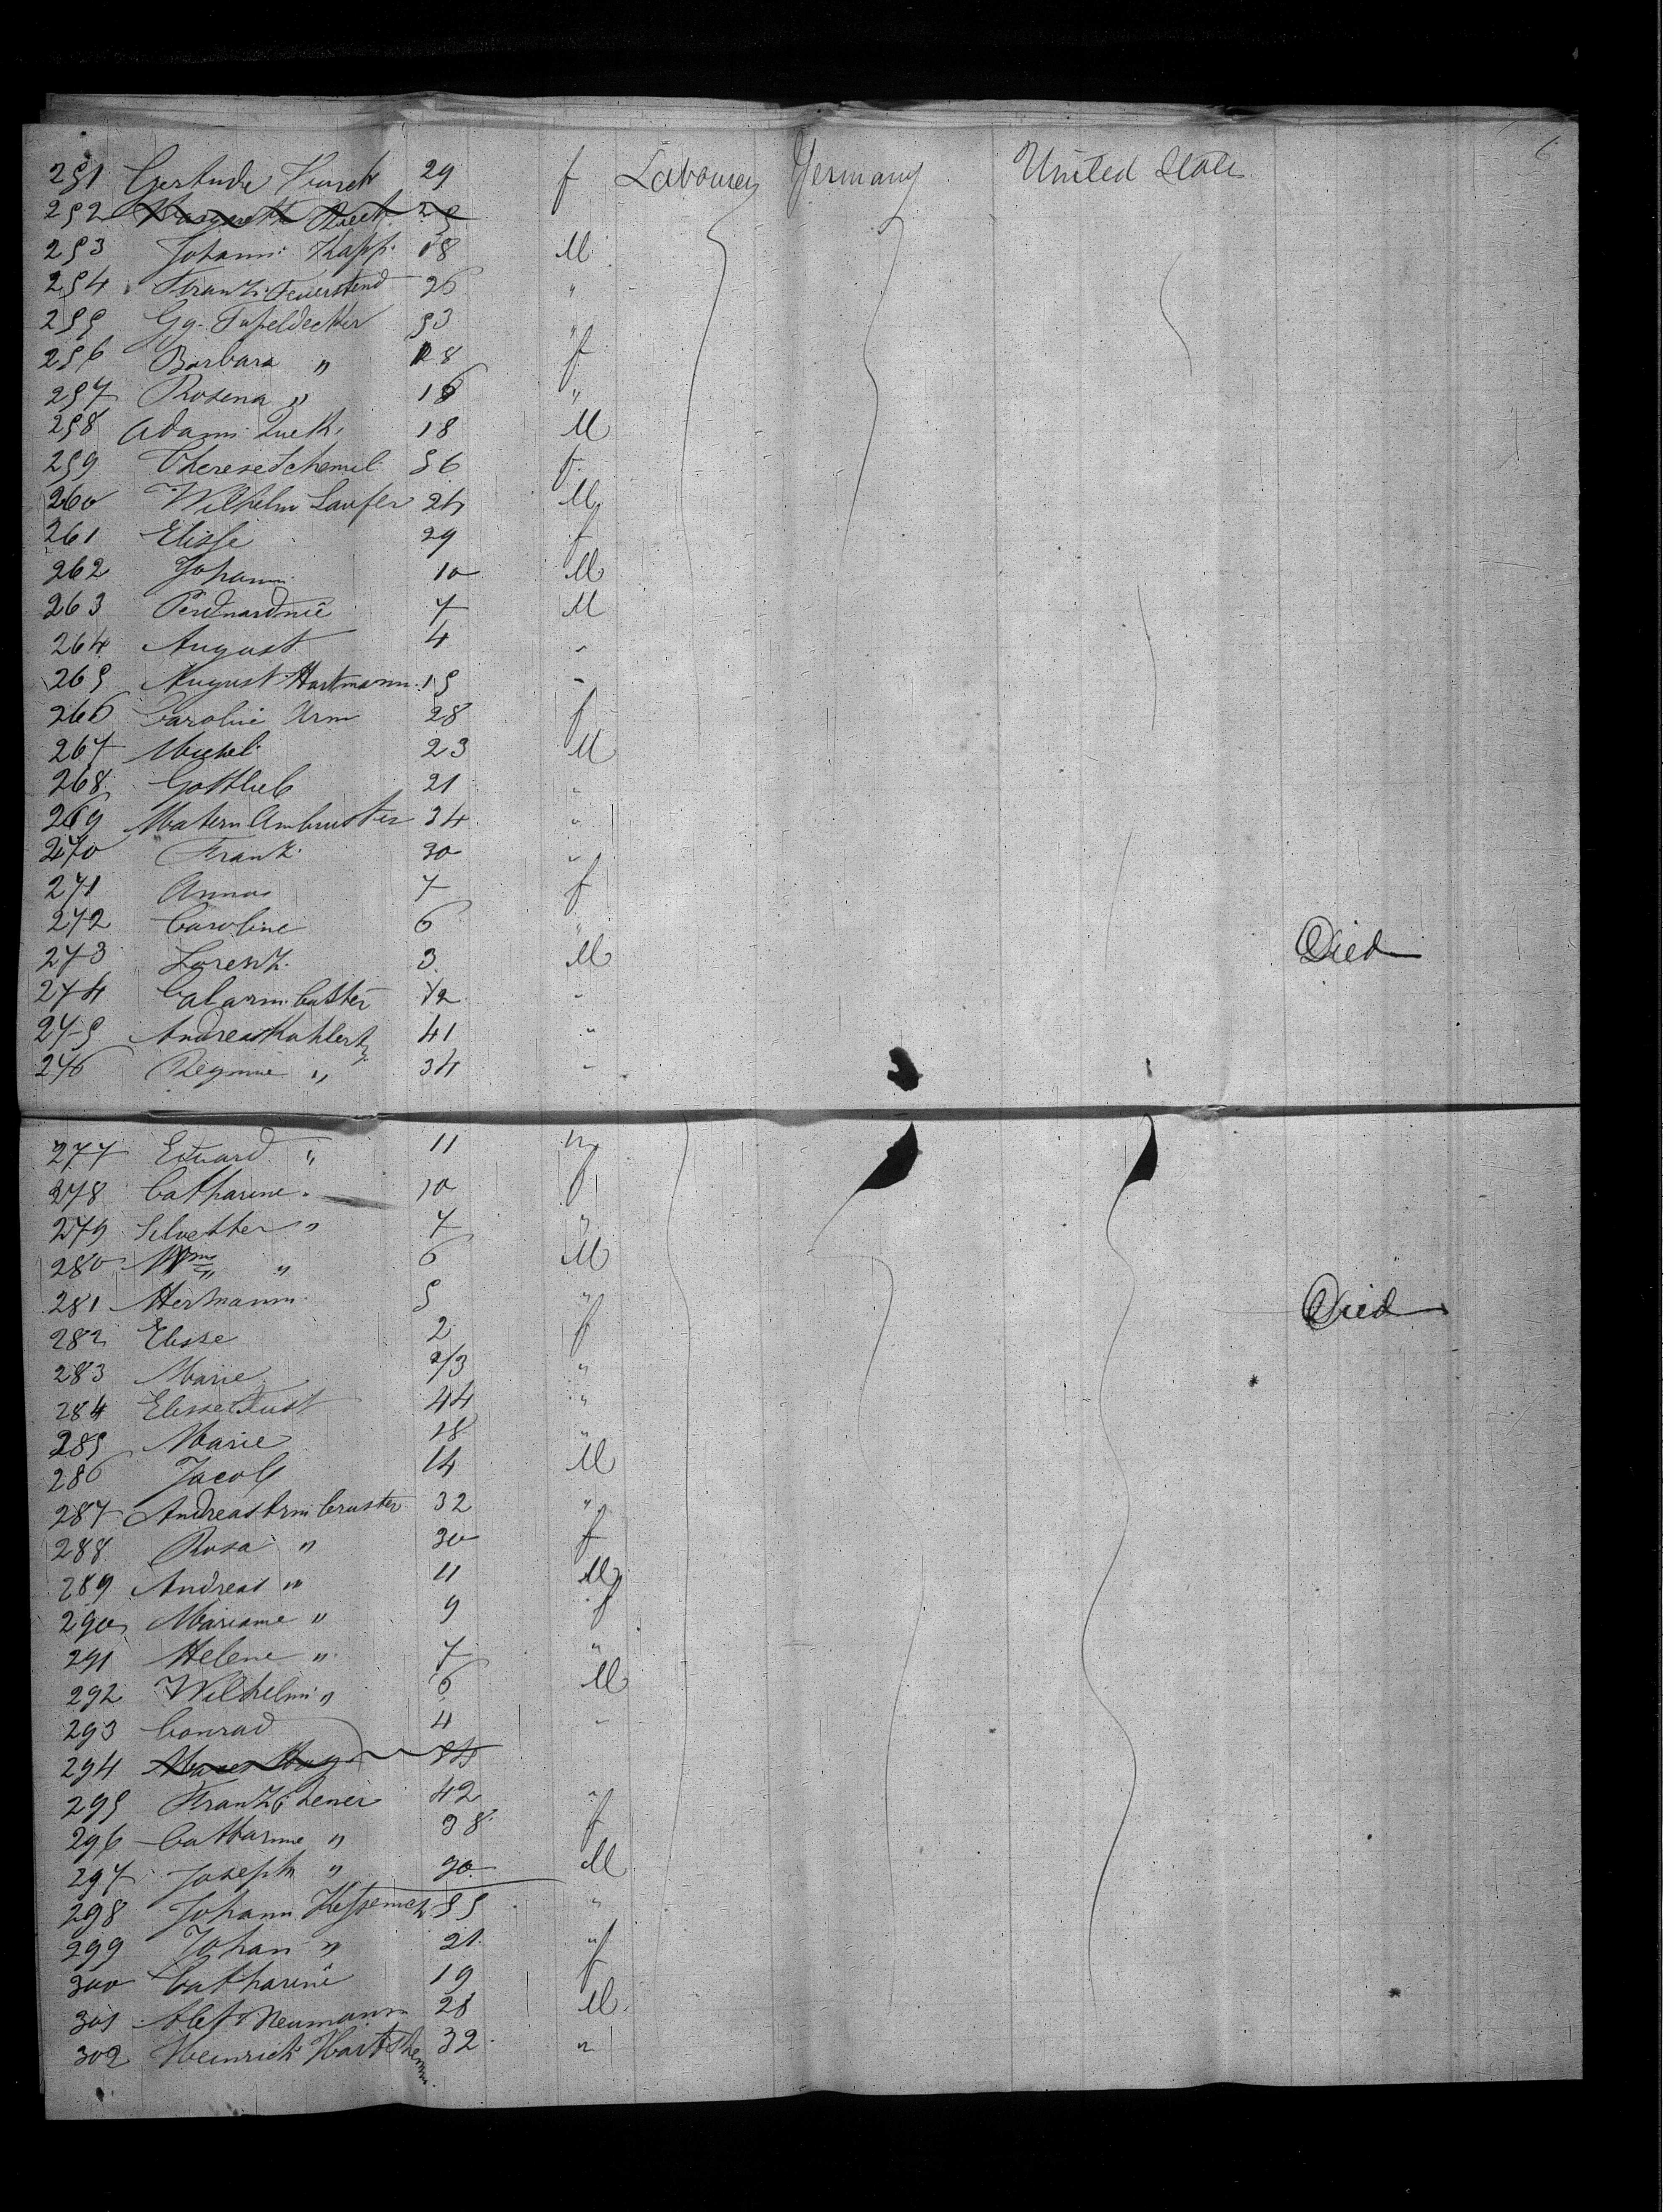 6
251 Gertrude 29 f Labourer Germany United States
252
253 Johann Kapp 18 M
254 Franz Feuerstend 26 "
255 Gg. Tafeldecker 53 "
256 Barbara " 28 f
257 Rosena " 16 "
258 Adam 18 M
259 Therese Schemel 56 f
260 Wilhelm Laufer 24 M
261 Elisse 29 f
262 Johann 10 M
263 7 M
264 August 4 "
265 August Hartmann 15 "
266 Caroline Arm 28 f
267 Michel 23 M
268 Gottlieb 21 "
269 Matern Ambruster 34 "
270 Franz 30 "
271 Anna 7 f
272 Caroline 6 "
273 Lorenz 3 M Died
274 1/2 "
275 Andreas Kahlert 41 "
276 Regine " 34 "
277 Eduard " 11 "
278 Catharine " 10 f
279 " 7 "
280 Wm " 6 M
281 Hermann 5 " Died
282 Elisse 2 f
283 Marie 2/3 "
284 Elisse 44 "
285 Marie 18 "
286 Jacob 14 M
287 Andreas Armbruster 32 "
288 Rosa " 30 f
289 Andreas " 11 M
290 Mariame " 9 f
291 Helene " 7 "
292 Wilhelm " 6 M
293 Conrad 4 "
294
295 Franz 42 "
296 Catharine " 38 f
297 Joseph " M
298 Johann 55 "
299 Johan " 21 "
300 Catharine 19 f
301 Neumann 28 M
302 Heinrich 32 "